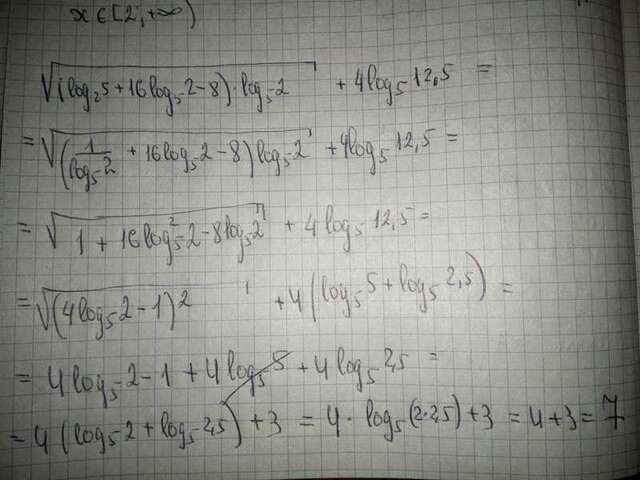 x ∈ [2; +∞)
√((log₂5 + 16log₅2 − 8) · log₅2) + 4log₅12,5 =
= √((1/log₅2 + 16log₅2 − 8)log₅2) + 4log₅12,5 =
= √(1 + 16log₅²2 − 8log₅2) + 4log₅12,5 =
= √((4log₅2 − 1)²) + 4(log₅5 + log₅2,5) =
= 4log₅2 − 1 + 4log₅5 + 4log₅2,5 =
= 4(log₅2 + log₅2,5) + 3 = 4 · log₅(2·2,5) + 3 = 4 + 3 = 7